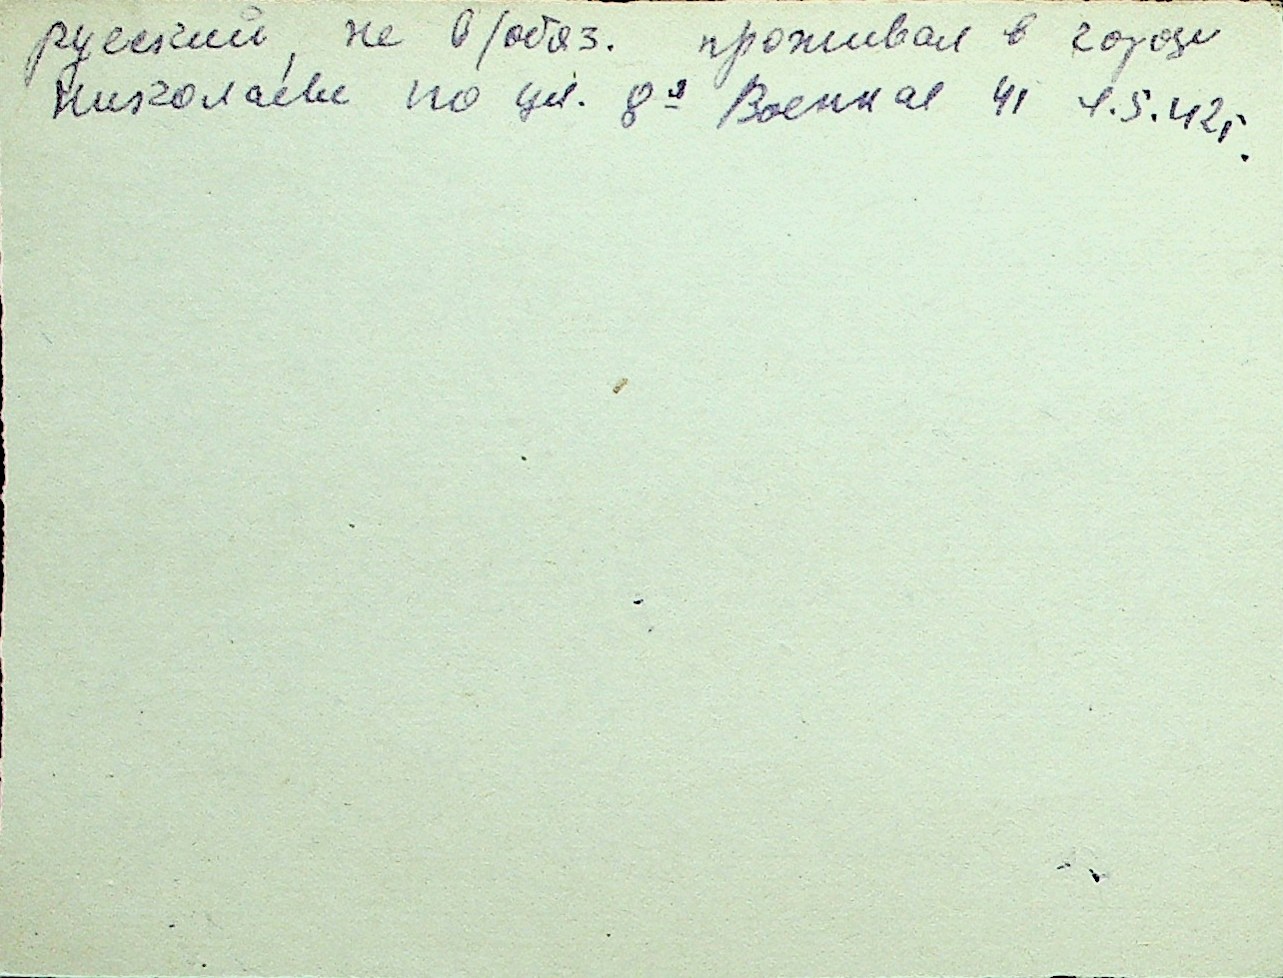 русский, не в/обяз. проживал в городе
Николаеве по ул. 8я Военная 41 1.5.42г.